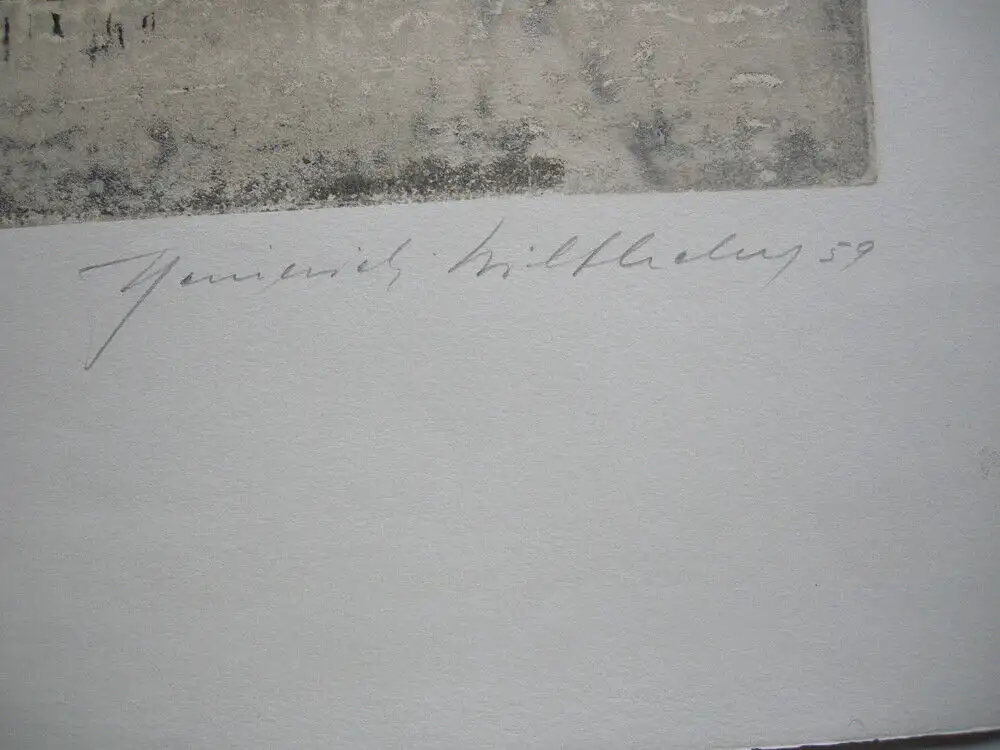 Heinrich Wilthelm 59